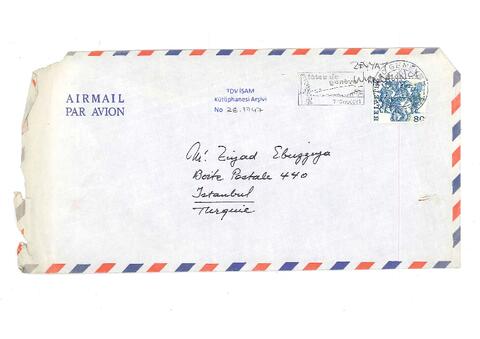 AIRMAIL
PAR AVION
TDV İSAM
Kütüphanesi Arşivi
No 2E.1747
fêtes de
genève
HELVETIA
80
Mr Ziyad Ebuzziya
Boîte Postale 440
Istanbul
Turquie